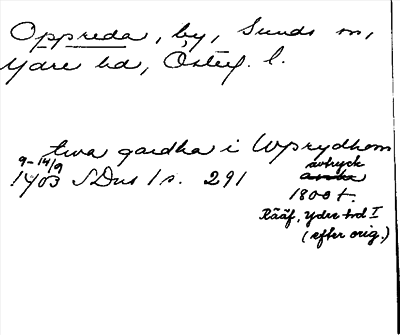 Oppreda, by, Sunds sn,
Ydre hd, Österg. l.
twa gardha i Wprydhom
9-14/9
1403 SDns 1 s. 291
avtryck
1800 t.
Rääf, Ydre hd I
(efter orig.)